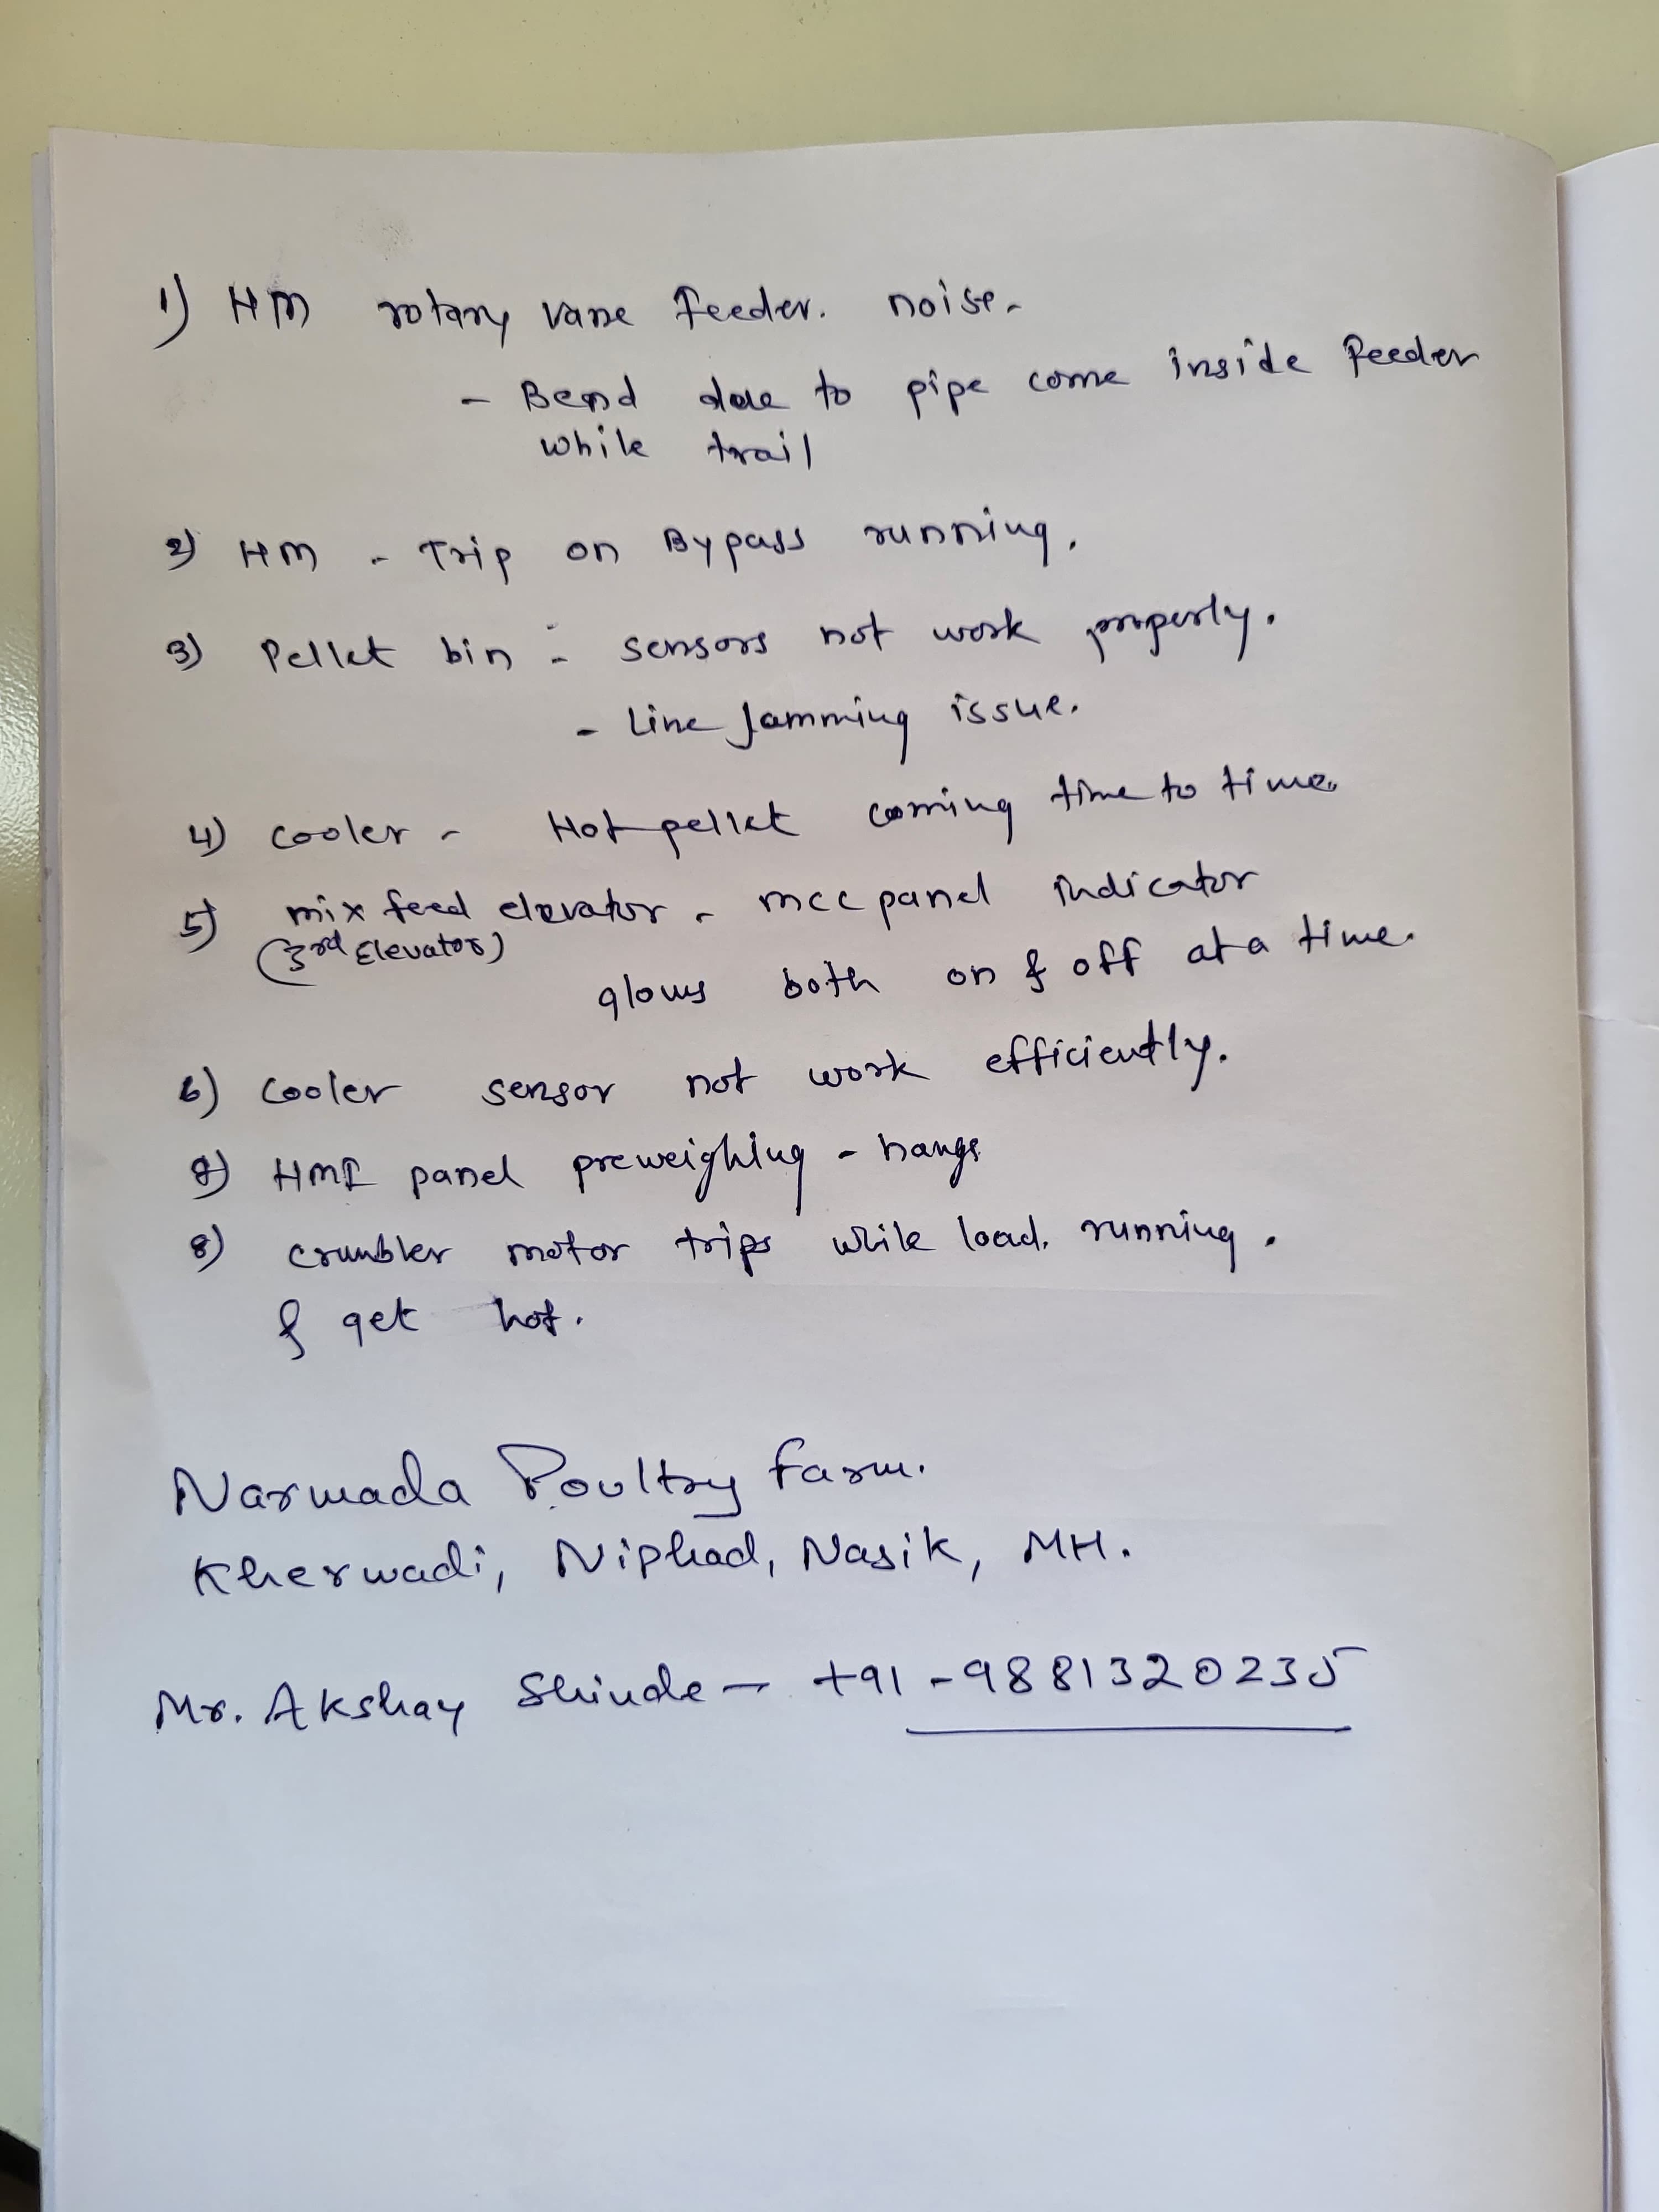 1) HM rotary vane feeder. noise.
- Bend due to pipe come inside feeder
while trail
2) HM - Trip on Bypass running.
3) Pellet bin :- sensors not work properly.
- Line Jamming issue.
4) cooler - Hot pellet coming time to time.
5) mix feed elevator - mcc panel indicator
(3rd Elevator)
glows both on & off at a time.
6) cooler sensor not work efficiently.
7) HMI panel preweighing - hangs
8) crumbler motor trips while load. running.
& get hot.
Narmada Poultry farm.
Kherwadi, Niphad, Nasik, MH.
Mr. Akshay Shinde - +91-9881320235